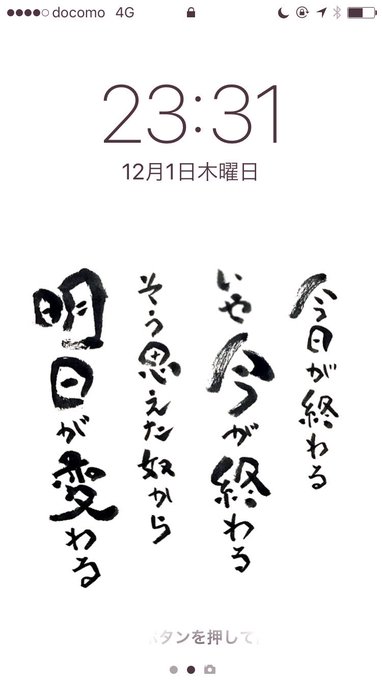 docomo 4G
23:31
12月1日木曜日
今日が終わる
いや今が終わる
そう思えた奴から
明日が変わる
ボタンを押して